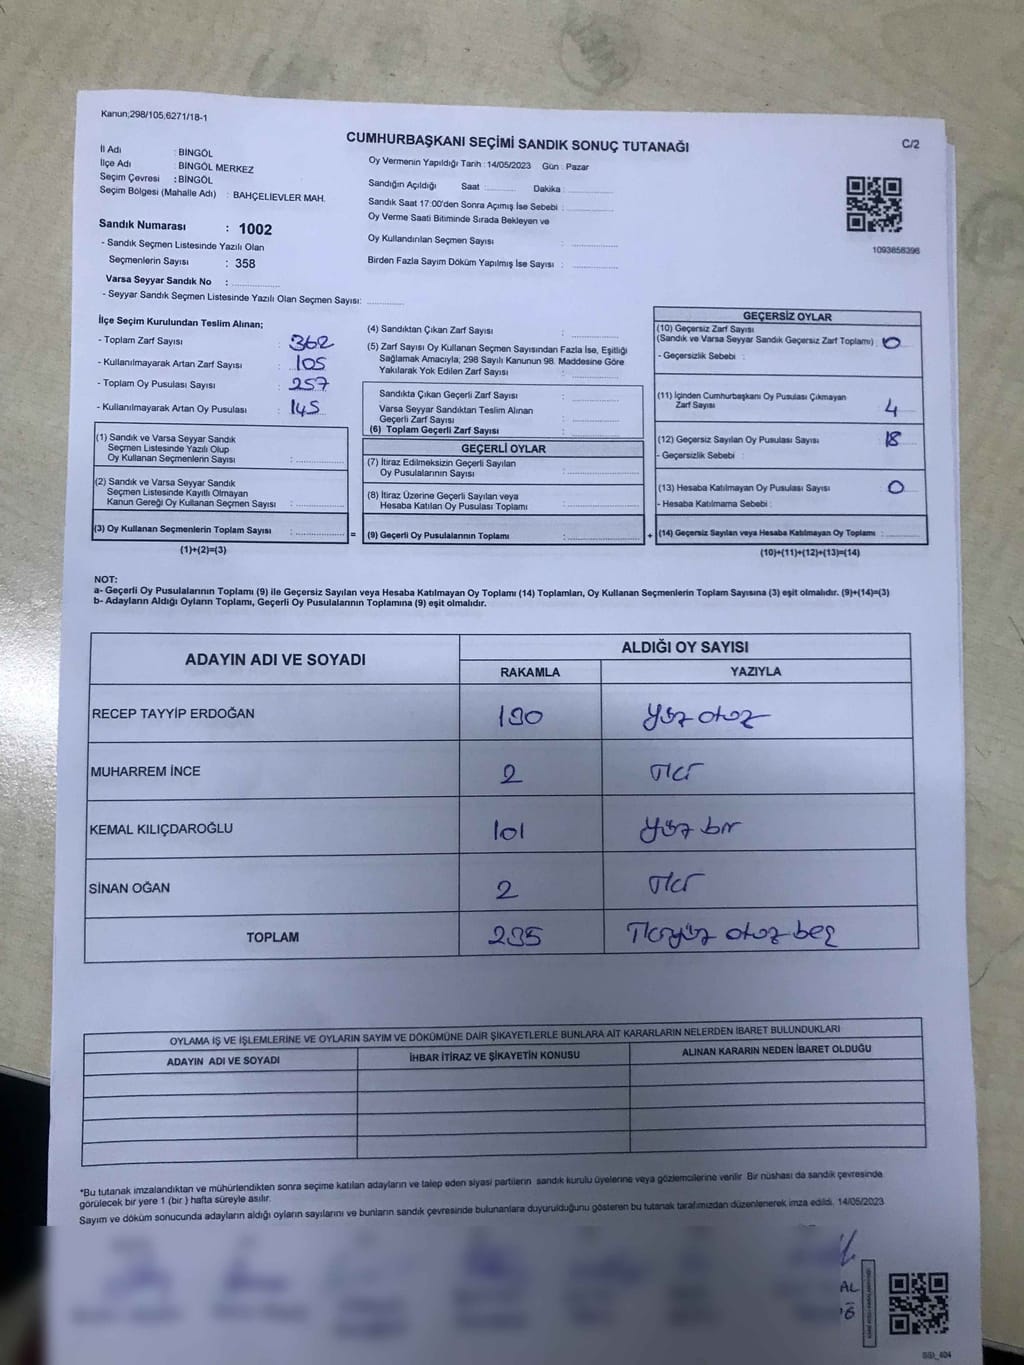 Kanun;298/105,6271/18-1
CUMHURBAŞKANI SEÇİMİ SANDIK SONUÇ TUTANAĞI
C/2
İl Adı : BİNGÖL
İlçe Adı : BİNGÖL MERKEZ
Seçim Çevresi : BİNGÖL
Seçim Bölgesi (Mahalle Adı) : BAHÇELİEVLER MAH.
Oy Vermenin Yapıldığı Tarih : 14/05/2023 Gün : Pazar
Sandığın Açıldığı Saat : Dakika :
Sandık Saat 17:00'den Sonra Açımış İse Sebebi :
Oy Verme Saati Bitiminde Sırada Bekleyen ve
Oy Kullandırılan Seçmen Sayısı :
Birden Fazla Sayım Döküm Yapılmış İse Sayısı :
1093858396
Sandık Numarası : 1002
- Sandık Seçmen Listesinde Yazılı Olan
Seçmenlerin Sayısı : 358
Varsa Seyyar Sandık No :
- Seyyar Sandık Seçmen Listesinde Yazılı Olan Seçmen Sayısı:
İlçe Seçim Kurulundan Teslim Alınan;
- Toplam Zarf Sayısı : 362
- Kullanılmayarak Artan Zarf Sayısı : 105
- Toplam Oy Pusulası Sayısı : 257
- Kullanılmayarak Artan Oy Pusulası : 145
(1) Sandık ve Varsa Seyyar Sandık
Seçmen Listesinde Yazılı Olup
Oy Kullanan Seçmenlerin Sayısı :
(2) Sandık ve Varsa Seyyar Sandık
Seçmen Listesinde Kayıtlı Olmayan
Kanun Gereği Oy Kullanan Seçmen Sayısı :
(3) Oy Kullanan Seçmenlerin Toplam Sayısı : =
(1)+(2)=(3)
(4) Sandıktan Çıkan Zarf Sayısı :
(5) Zarf Sayısı Oy Kullanan Seçmen Sayısından Fazla İse, Eşitliği
Sağlamak Amacıyla, 298 Sayılı Kanunun 98. Maddesine Göre
Yakılarak Yok Edilen Zarf Sayısı :
Sandıkta Çıkan Geçerli Zarf Sayısı :
Varsa Seyyar Sandıktan Teslim Alınan
Geçerli Zarf Sayısı :
(6) Toplam Geçerli Zarf Sayısı :
GEÇERLİ OYLAR
(7) İtiraz Edilmeksizin Geçerli Sayılan
Oy Pusulalarının Sayısı :
(8) İtiraz Üzerine Geçerli Sayılan veya
Hesaba Katılan Oy Pusulası Toplamı :
(9) Geçerli Oy Pusulalarının Toplamı : +
GEÇERSİZ OYLAR
(10) Geçersiz Zarf Sayısı
(Sandık ve Varsa Seyyar Sandık Geçersiz Zarf Toplamı) : 0
- Geçersizlik Sebebi :
(11) İçinden Cumhurbaşkanı Oy Pusulası Çıkmayan
Zarf Sayısı : 4
(12) Geçersiz Sayılan Oy Pusulası Sayısı : 18
- Geçersizlik Sebebi :
(13) Hesaba Katılmayan Oy Pusulası Sayısı : 0
- Hesaba Katılmama Sebebi :
(14) Geçersiz Sayılan veya Hesaba Katılmayan Oy Toplamı :
(10)+(11)+(12)+(13)=(14)
NOT:
a- Geçerli Oy Pusulalarının Toplamı (9) ile Geçersiz Sayılan veya Hesaba Katılmayan Oy Toplamı (14) Toplamları, Oy Kullanan Seçmenlerin Toplam Sayısına (3) eşit olmalıdır. (9)+(14)=(3)
b- Adayların Aldığı Oyların Toplamı, Geçerli Oy Pusulalarının Toplamına (9) eşit olmalıdır.
ADAYIN ADI VE SOYADI ALDIĞI OY SAYISI
RAKAMLA YAZIYLA
RECEP TAYYİP ERDOĞAN 130 Yüz otuz
MUHARREM İNCE 2 İki
KEMAL KILIÇDAROĞLU 101 Yüz bir
SİNAN OĞAN 2 İki
TOPLAM 235 İkiyüz otuz beş
OYLAMA İŞ VE İŞLEMLERİNE VE OYLARIN SAYIM VE DÖKÜMÜNE DAİR ŞİKAYETLERLE BUNLARA AİT KARARLARIN NELERDEN İBARET BULUNDUKLARI
ADAYIN ADI VE SOYADI İHBAR İTİRAZ VE ŞİKAYETİN KONUSU ALINAN KARARIN NEDEN İBARET OLDUĞU
*Bu tutanak imzalandıktan ve mühürlendikten sonra seçime katılan adayların ve talep eden siyasi partilerin sandık kurulu üyelerine veya gözlemcilerine verilir Bir nüshası da sandık çevresinde
görülecek bir yere 1 (bir ) hafta süreyle asılır.
Sayım ve döküm sonucunda adayların aldığı oyların sayılarını ve bunların sandık çevresinde bulunanlara duyurulduğunu gösteren bu tutanak tarafımızdan düzenlenerek imza edildi. 14/05/2023
AL